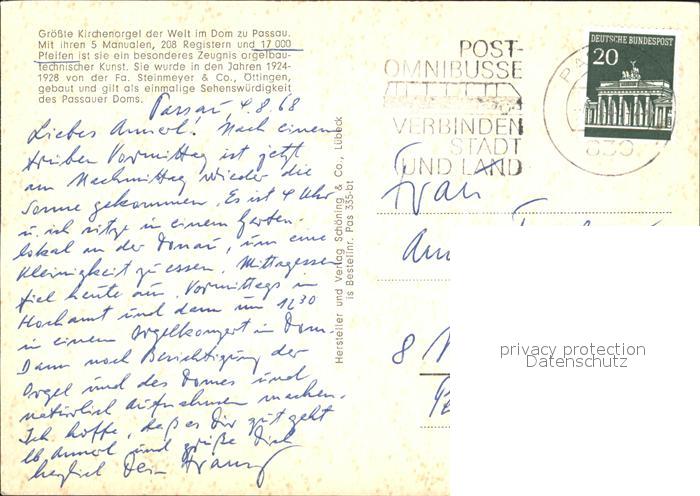 Größte Kirchenorgel der Welt im Dom zu Passau.
Mit ihren 5 Manualen, 208 Registern und 17 000
Pfeifen ist sie ein besonderes Zeugnis orgelbau-
technischer Kunst. Sie wurde in den Jahren 1924-
1928 von der Fa. Steinmeyer & Co., Öttingen,
gebaut und gilt als einmalige Sehenswürdigkeit
des Passauer Doms.
Passau, 4.8.68
Liebes Annerl! Nach einem
trüben Vormittag ist jetzt
am Nachmittag wieder die
Sonne gekommen. Es ist 4 Uhr
u. ich sitze in einem Garten-
lokal an der Donau, um eine
Kleinigkeit zu essen. Mittagessen
fiel heute aus. Vormittags in
Hochamt und dann um 11,30
in einem Orgelkonzert im Dom.
Dann noch Besichtigung der
Orgel und des Domes und
natürlich Aufnahmen machen.
Ich hoffe, daß es Dir gut geht
lb Annerl und grüße Dich
herzlich Dein Franz
Hersteller und Verlag Schöning & Co., Lübeck
is Bestellnr. Pas 335-bt
POST-
OMNIBUSSE
VERBINDEN
STADT
UND LAND
DEUTSCHE BUNDESPOST
20
PA
839
Frau
8
privacy protection
Datenschutz